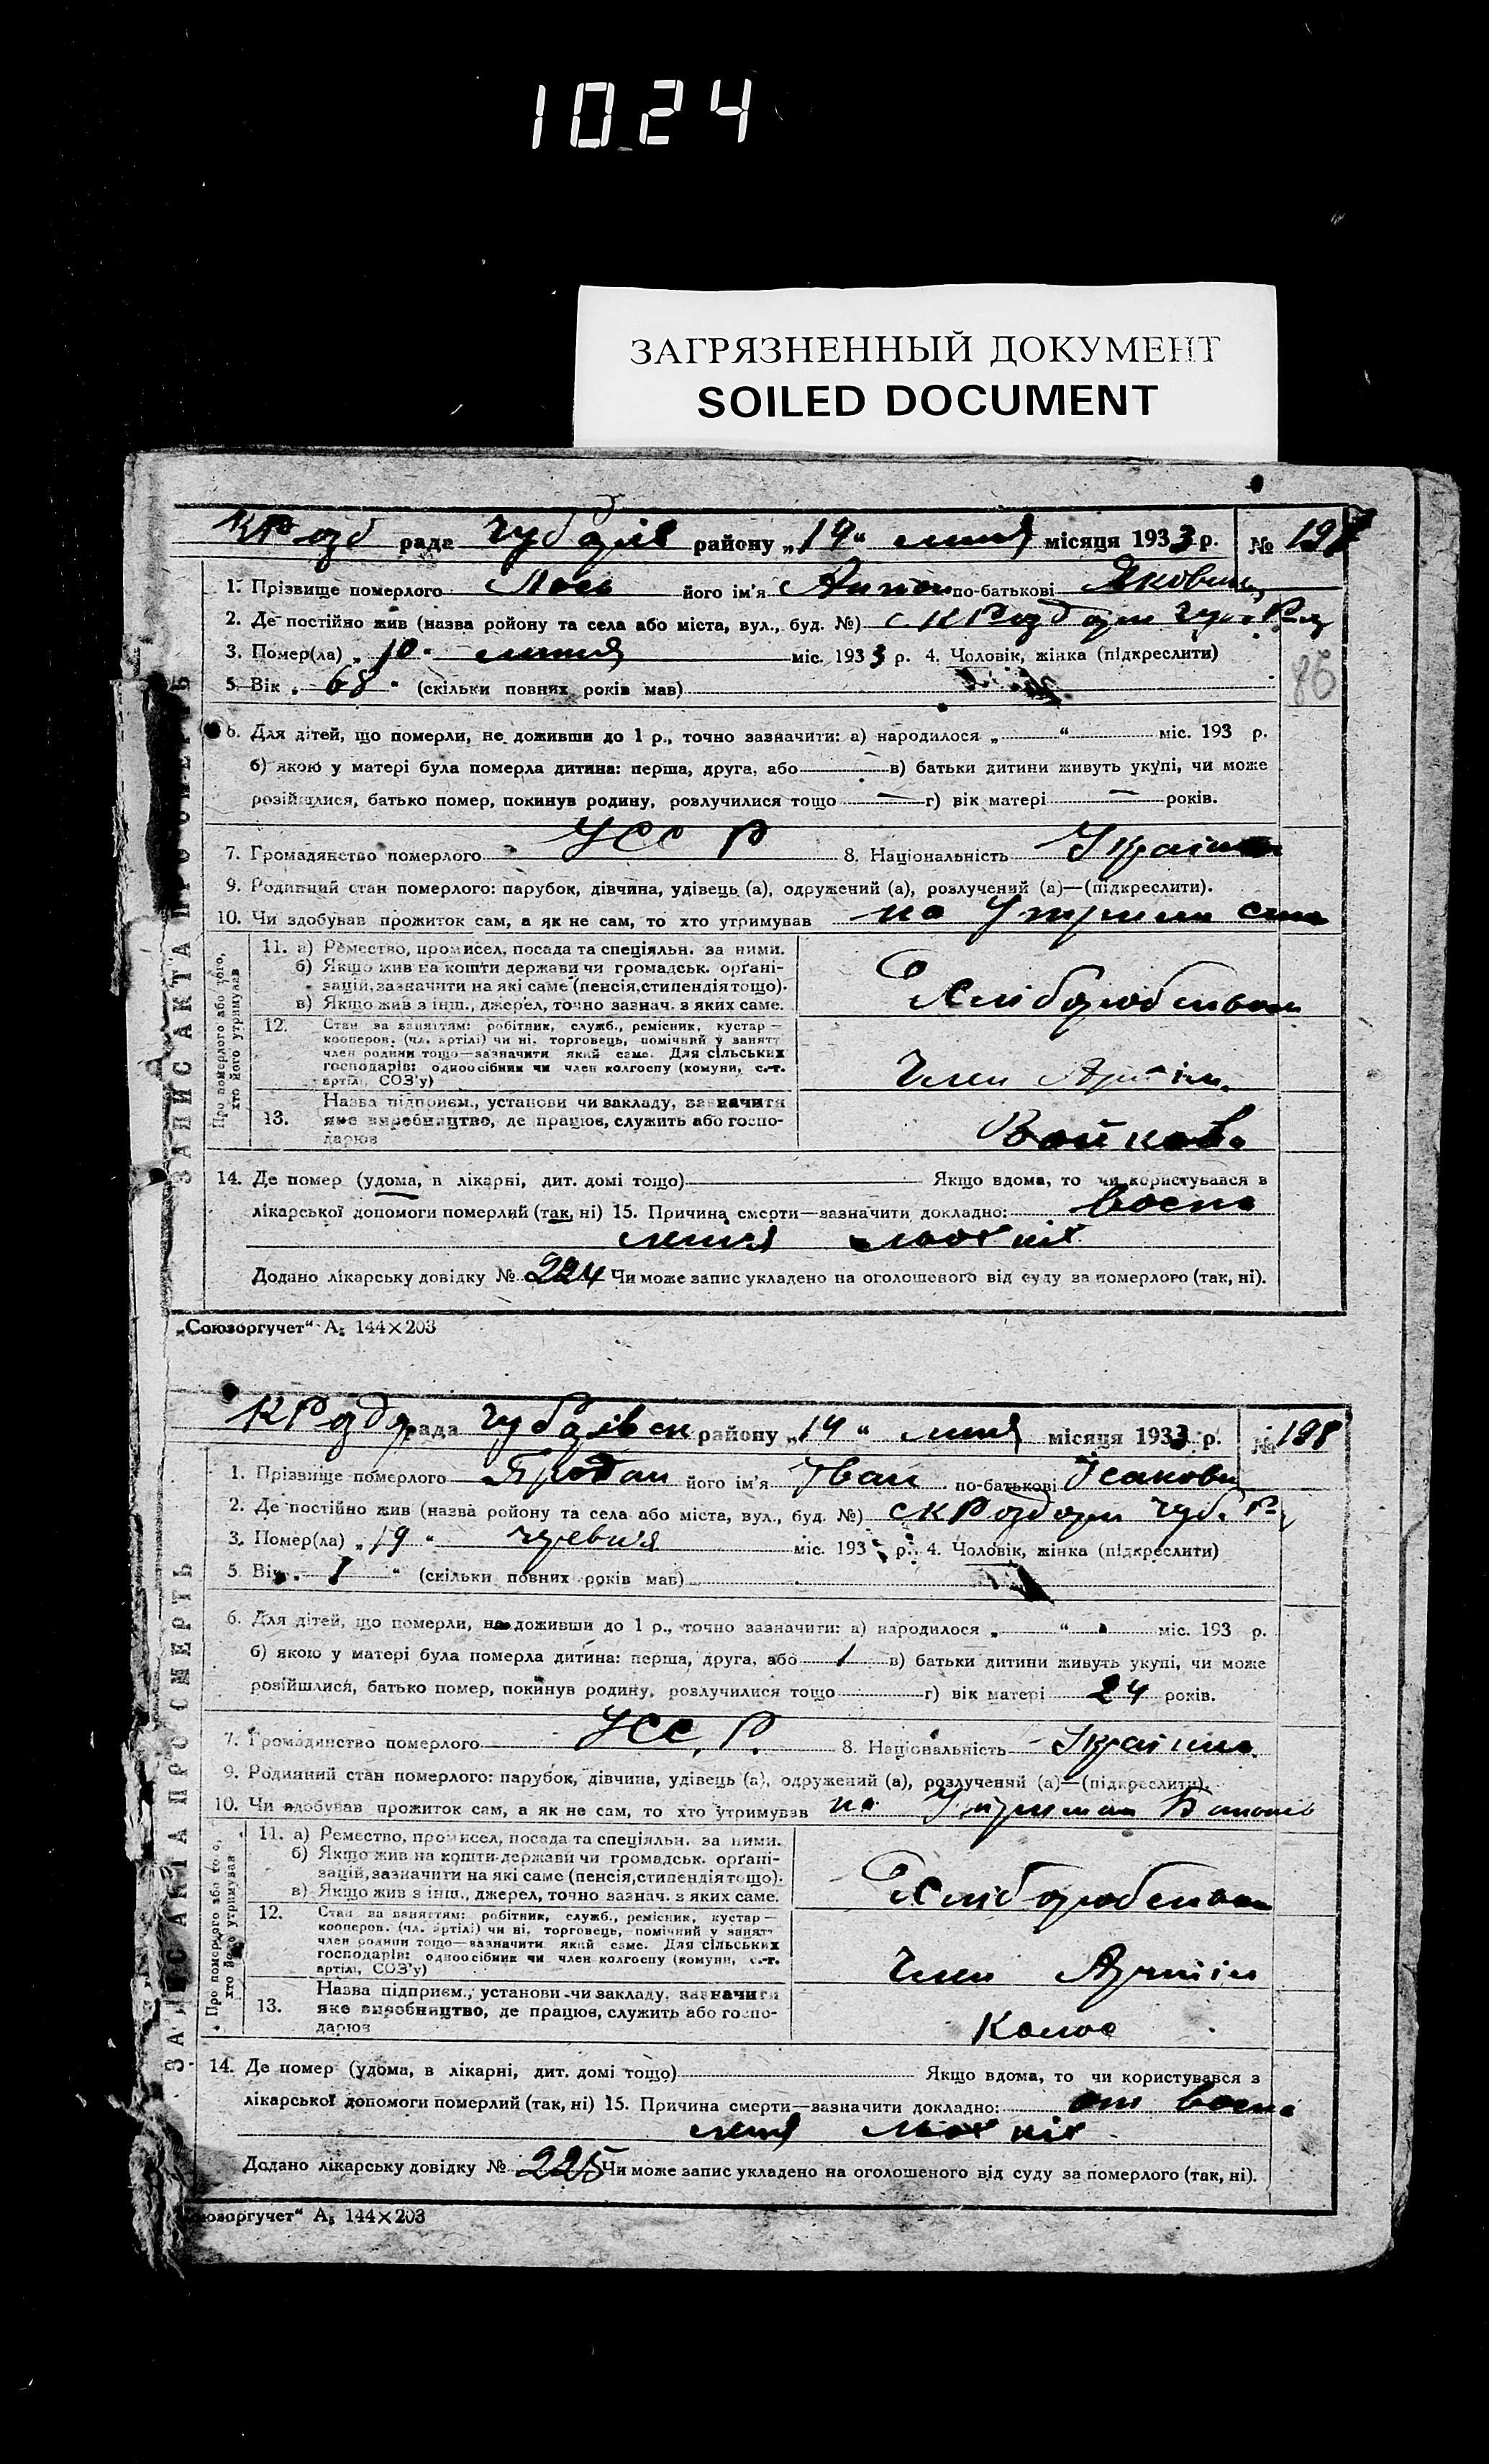 1024
ЗАГРЯЗНЕННЫЙ ДОКУМЕНТ
SOILED DOCUMENT
КРозд рада Чубарів району „14“ липня місяця 1933 р. № 197
1. Прізвище померлого Лось його ім'я Антон по-батькові Якович
2. Де постійно жив (назва району та села або міста, вул., буд. №) с КРоздори Чуб. Р-ну
3. Помер(ла) „10“ липня міс. 1933 р. 4. Чоловік, жінка (підкреслити)
86
5. Вік „68“ (скільки повних років мав)
6. Для дітей, що померли, не доживши до 1 р., точно зазначити: а) народилося „ “ міс. 193 р.
б) якою у матері була померла дитина: перша, друга, або в) батьки дитини живуть укупі, чи може
розійшлися, батько помер, покинув родину, розлучилися тощо — г) вік матері — років.
7. Громадянство померлого УССР 8. Національність Україн
9. Родинний стан померлого: парубок, дівчина, удівець (а), одружений (а), розлучений (а)—(підкреслити).
10. Чи здобував прожиток сам, а як не сам, то хто утримував на Утриман сина
ЗАПИС АКТА ПРО СМЕРТЬ
Про померлого або того, хто його утримував
11. а) Ремество, промисел, посада та спеціяльн. за ними.
б) Якщо жив на кошти держави чи громадськ. орґані-
зацій, зазначити на які саме (пенсія, стипендія тощо).
в) Якщо жив з інш., джерел, точно зазнач. з яких саме.
Хліборобством
12. Стан за заняттям: робітник, служб., ремісник, кустар—
кооперов. (чл. артілі) чи ні, торговець, помічний у занятт
член родини тощо—зазначити який саме. Для сільських
господарів: одноосібник чи член колгоспу (комуни, с.-г.
артілі, СОЗ'у)
Член Артіли
13. Назва підприєм., установи чи закладу, зазначити
яке виробництво, де працює, служить або госпо-
дарює
Войкова
14. Де помер (удома, в лікарні, дит. домі тощо) Якщо вдома, то чи користувався в
лікарської допомоги померлий (так, ні) 15. Причина смерти—зазначити докладно: воспа
лення
Додано лікарську довідку № 224 Чи може запис укладено на оголошеного від суду за померлого (так, ні).
„Союзоргучет“ А₅ 144×203
КРоздо рада Чубарівск району „14“ липня місяця 1933 р. № 198
1. Прізвище померлого Продан його ім'я Іван по-батькові Ісакови
2. Де постійно жив (назва району та села або міста, вул., буд. №) с КРоздори Чуб. Р-
3. Помер(ла) „19“ червня міс. 193 р. 4. Чоловік, жінка (підкреслити)
5. Вік „1“ (скільки повних років мав)
6. Для дітей, що померли, не доживши до 1 р., точно зазначити: а) народилося „ “ міс. 193 р.
б) якою у матері була померла дитина: перша, друга, або 1 в) батьки дитини живуть укупі, чи може
розійшлися, батько помер, покинув родину, розлучилися тощо г) вік матері 24 років.
7. Громадянство померлого УССР. 8. Національність Україн
9. Родинний стан померлого: парубок, дівчина, удівець (а), одружений (а), розлучений (а)—(підкреслити).
10. Чи здобував прожиток сам, а як не сам, то хто утримував на Утриман
ЗАПИС АКТА ПРО СМЕРТЬ
Про померлого або того, хто його утримував
11. а) Ремество, промисел, посада та спеціяльн. за ними.
б) Якщо жив на кошти держави чи громадськ. орґані-
зацій, зазначити на які саме (пенсія, стипендія тощо).
в) Якщо жив з інш., джерел, точно зазнач. з яких саме.
Хліборобством
12. Стан за заняттям: робітник, служб., ремісник, кустар—
кооперов. (чл. артілі) чи ні, торговець, помічний у занятт
член родини тощо—зазначити який саме. Для сільських
господарів: одноосібник чи член колгоспу (комуни, с.-г.
артілі, СОЗ'у)
Член Артіли
13. Назва підприєм., установи чи закладу, зазначити
яке виробництво, де працює, служить або госпо-
дарює
Колос
14. Де помер (удома, в лікарні, дит. домі тощо) Якщо вдома, то чи користувався з
лікарської допомоги померлий (так, ні) 15. Причина смерти—зазначити докладно: от воспа
лення
Додано лікарську довідку № 225 Чи може запис укладено на оголошеного від суду за померлого (так, ні).
юзоргучет“ А₅ 144×203